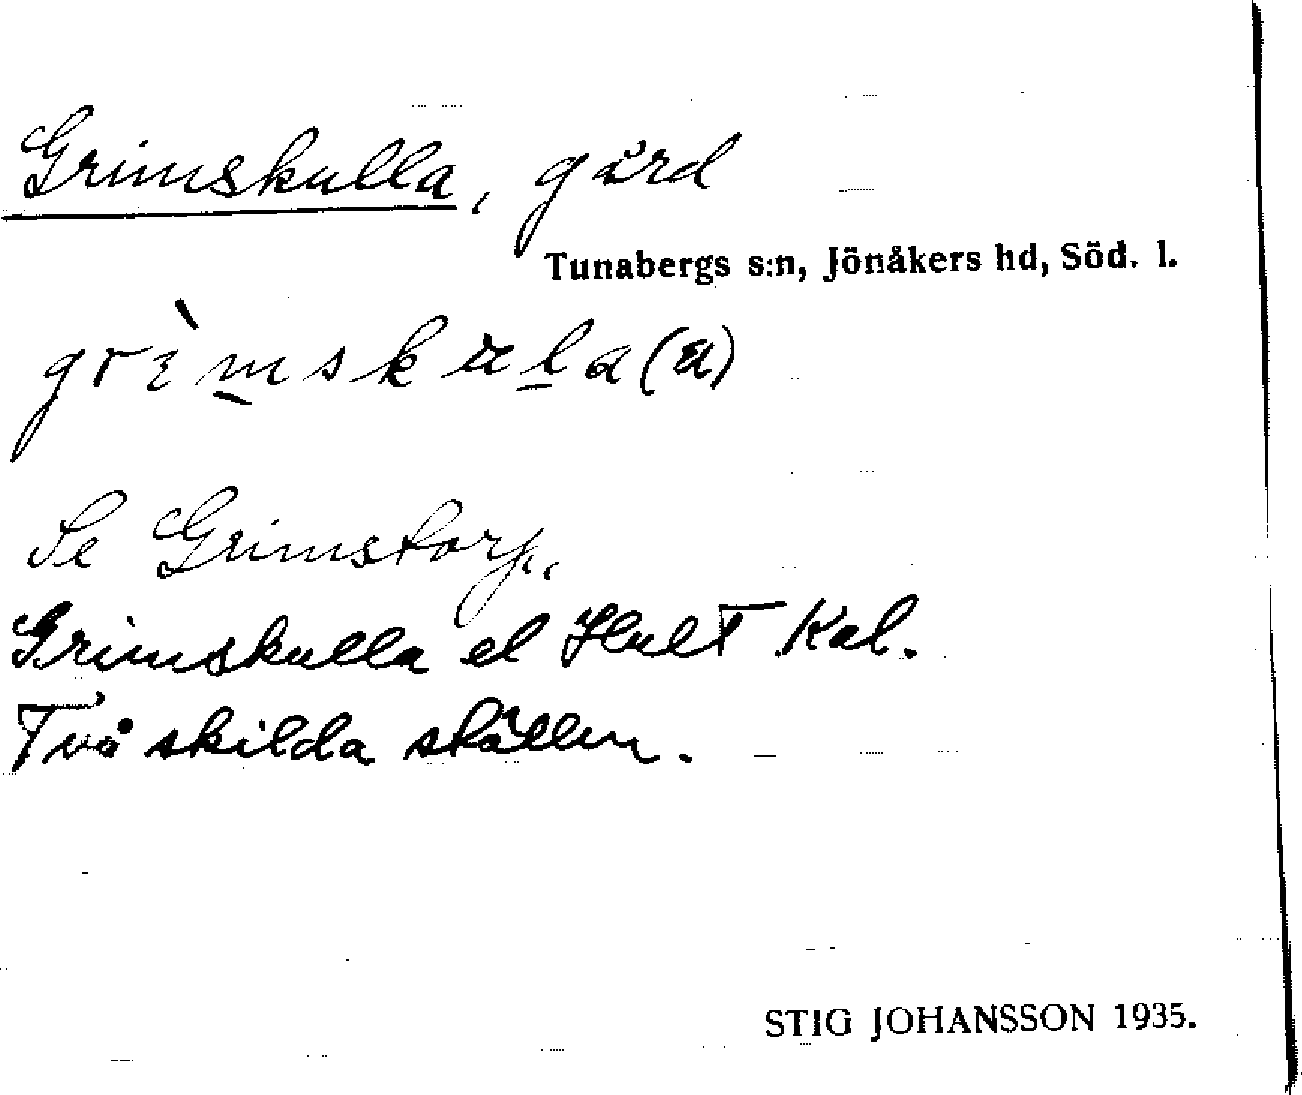 Grimskulla, gård
Tunabergs s:n, Jönåkers hd, Söd. l.
grìmskula(a)
Se Grimstorp.
Grimskulla el Hult Kal.
Två skilda ställen.
STIG JOHANSSON 1935.